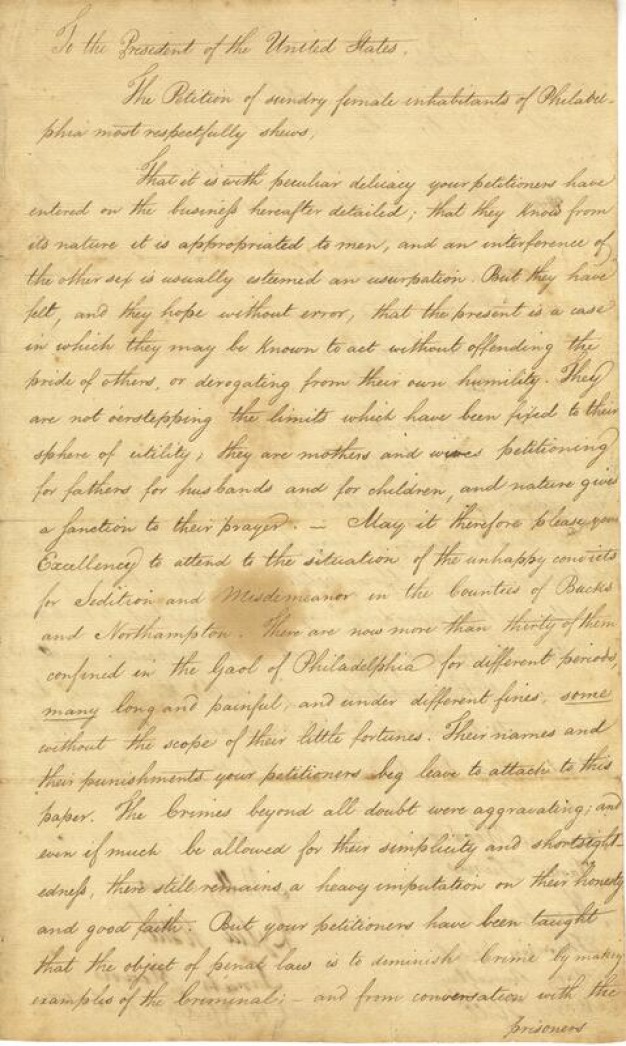 To the President of the United States.
The Petition of sundry female inhabitants of Philadel-
phia most respectfully shews,
That it is with peculiar delicacy your petitioners have
entered on the business hereafter detailed; that they know from
its nature it is appropriated to men, and an interference of
the other sex is usually esteemed an usurpation. But they have
felt, and they hope without error, that the present is a case
in which they may be known to act without offending the
pride of others, or derogating from their own humility. They
are not o'erstepping the limits which have been fixed to their
sphere of utility; they are mothers and wives petitioning
for fathers for husbands and for children, and nature gives
a sanction to their prayer. — May it therefore please your
Excellency to attend to the situation of the unhappy convicts
for Sedition and Misdemeanor in the Counties of Bucks
and Northampton. There are now more than thirty of them
confined in the Gaol of Philadelphia for different periods,
many long and painful, and under different fines, some
without the scope of their little fortunes. Their names and
their punishments your petitioners beg leave to attach to this
paper. The Crimes beyond all doubt were aggravating; and
even if much be allowed for their simplicity and shortsight-
edness, there still remains a heavy imputation on their honesty
and good faith. But your petitioners have been taught
that the object of penal law is to diminish Crime by making
examples of the Criminal; — and from conversation with the
prisoners